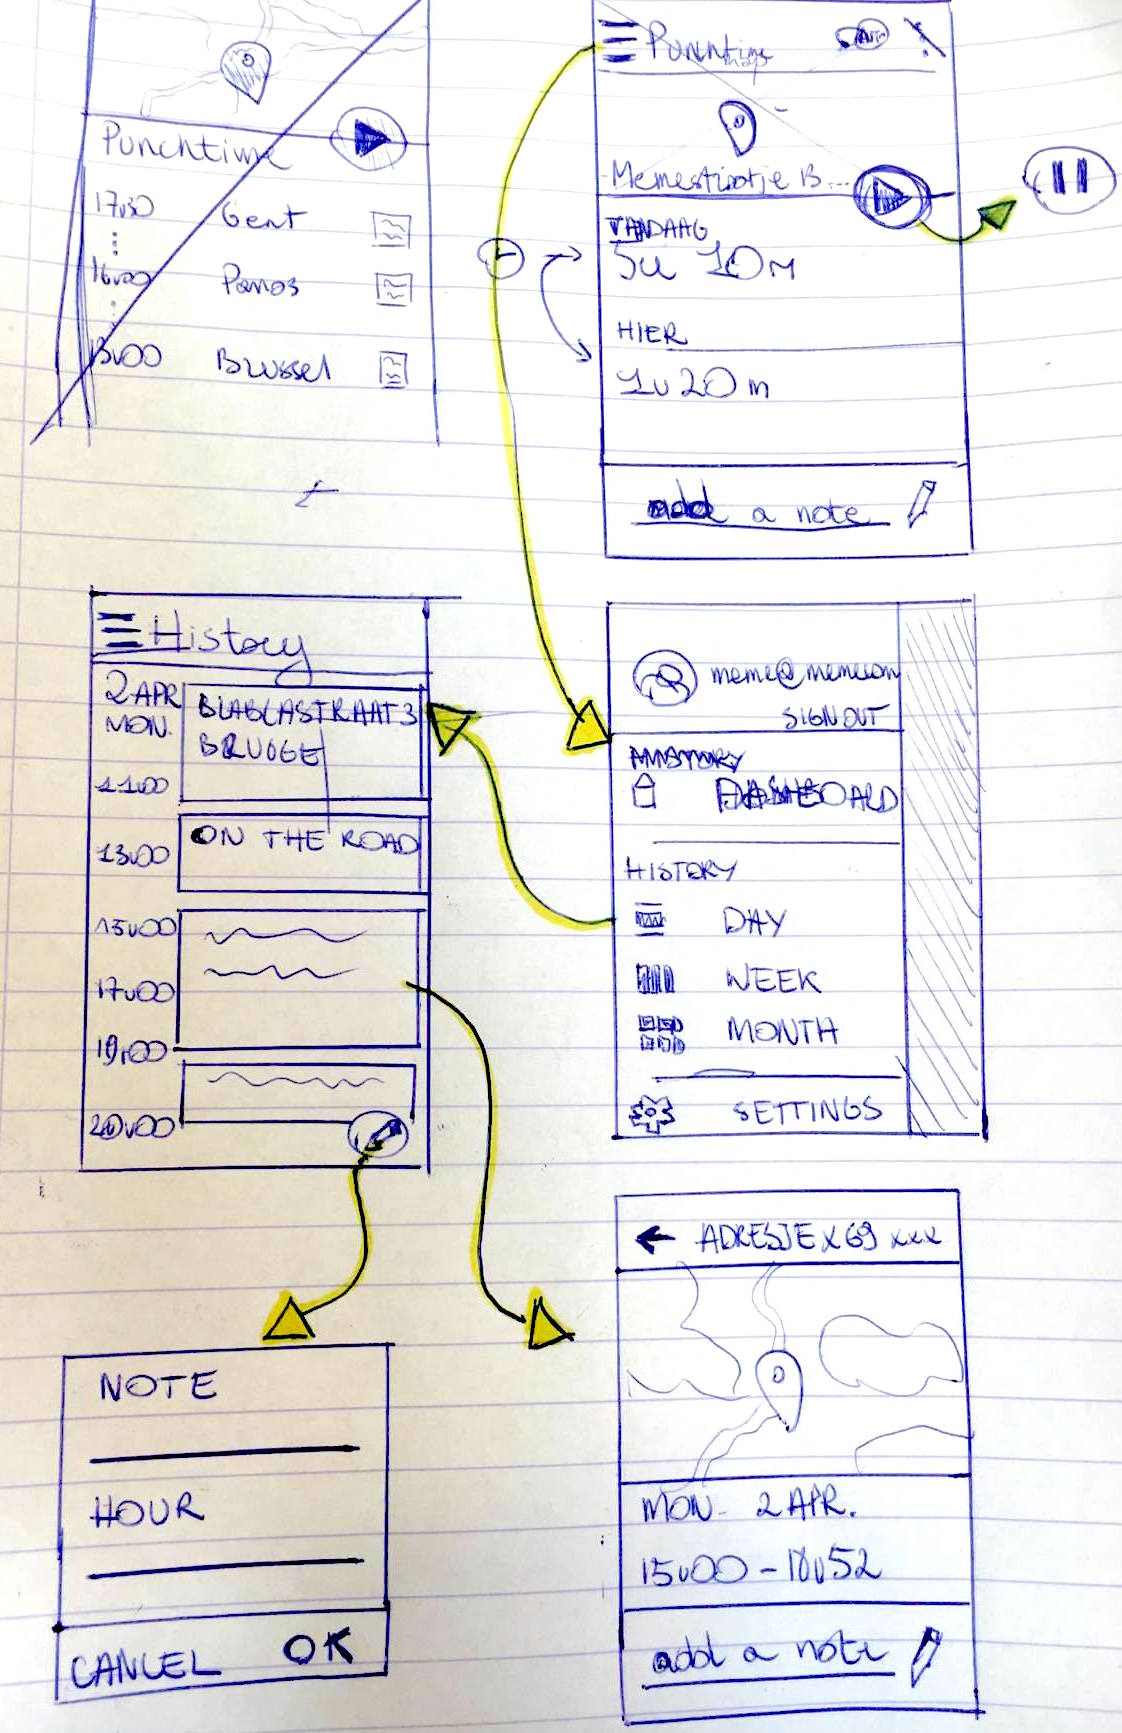 Punchtime
17u30 Gent
16u00 Panos
13u00 Brussel
Punchtime
Memestraatje B...
VANDAAG
5u 10m
HIER
1u 20m
add a note
History
2 APR
MON.
BLABLASTRAAT 3
BRUGGE
11u00
13u00
ON THE ROAD
15u00
17u00
19u00
20u00
meme@memecom
SIGN OUT
DASHBOARD
HISTORY
DAY
WEEK
MONTH
SETTINGS
NOTE
HOUR
CANCEL OK
ADRESJE x 69 xxx
MON. 2 APR.
15u00 - 18u52
add a note